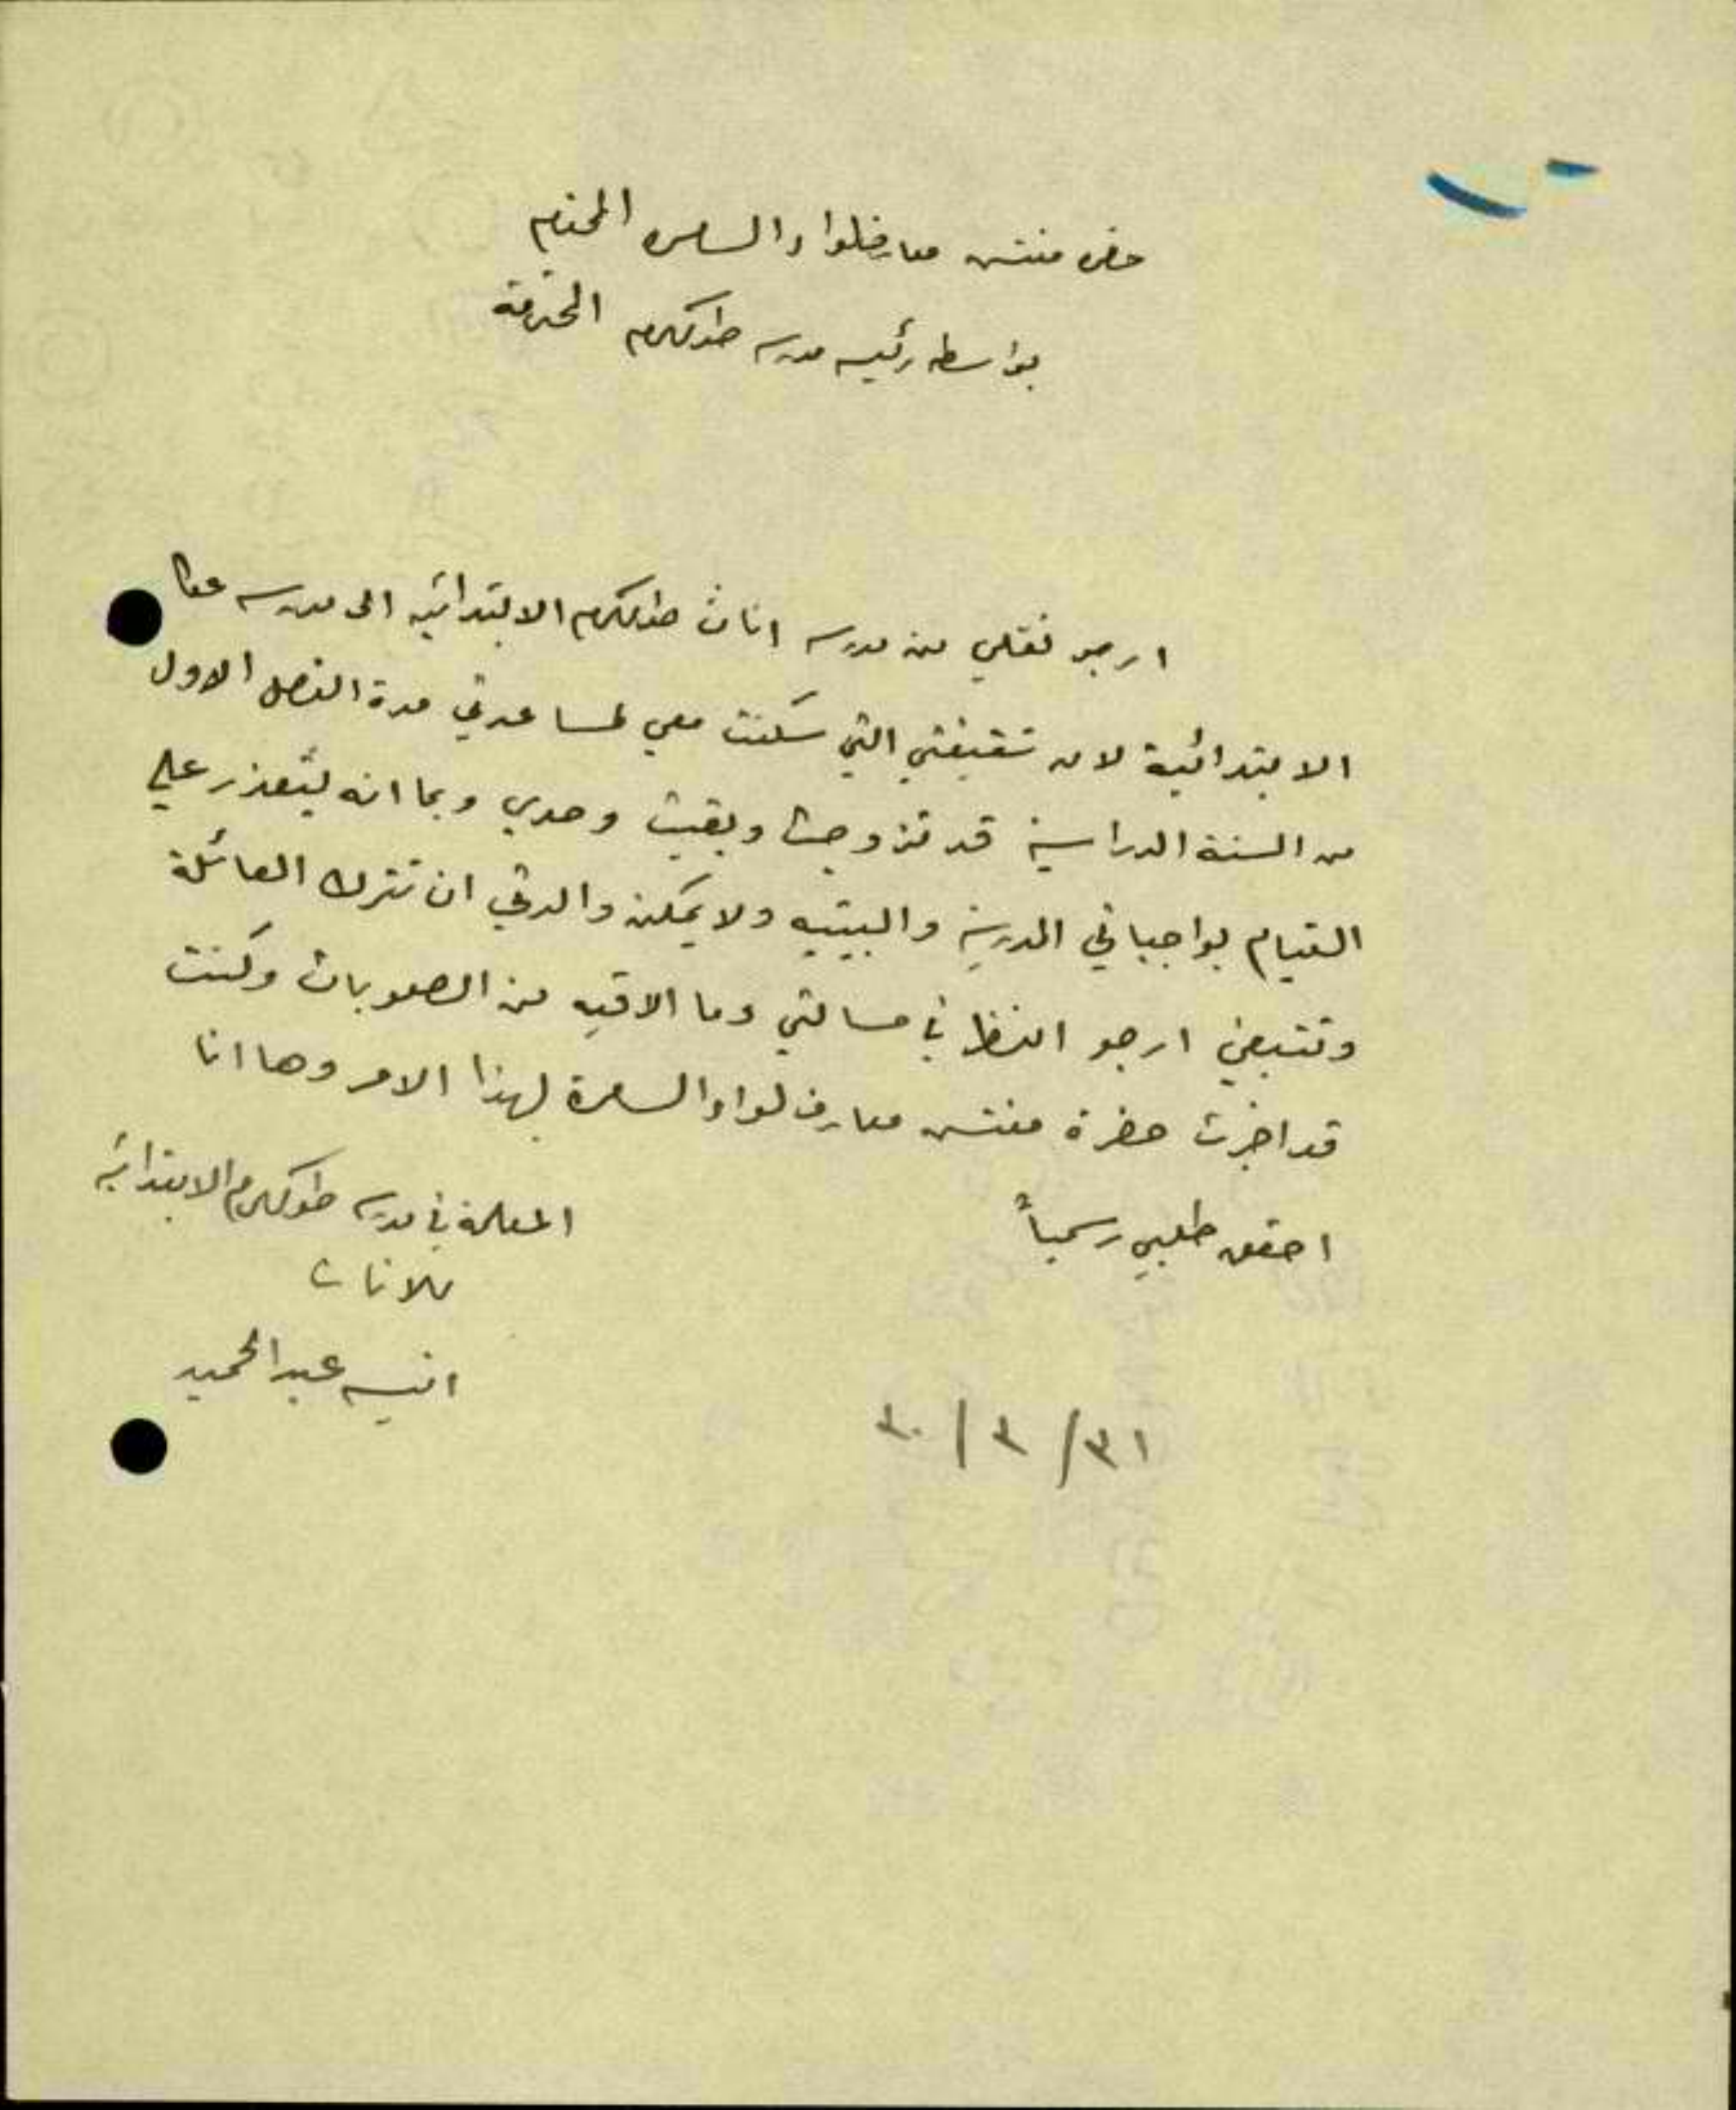 حضرة مفتش معارف لواء السامرة المحترم
بواسطة رئيسة مدرسة طولكرم المحترمة
ارجو نقلي من مدرسة اناث طولكرم الابتدائية الى مدرسة عكا
الابتدائية لان شقيقتي التي سكنت معي لمساعدتي مدة الفصل الاول
من السنة الدراسية قد تزوجت وبقيت وحدي وبما انه يتعذر علي
القيام بواجباتي المدرسية والبيتية ولا يمكن والدتي ان تترك العائلة
وتتبعني ارجو النظر في مسالتي وما الاقيه من الصعوبات وكنت
قد اخبرت حضرة مفتش معارف لواء السامرة بهذا الامر وها انا
احقق طلبي رسمياً
المعلمة في مدرسة طولكرم الابتدائية
للاناث
انيسه عبد الحميد
٣١/٣/٤٠